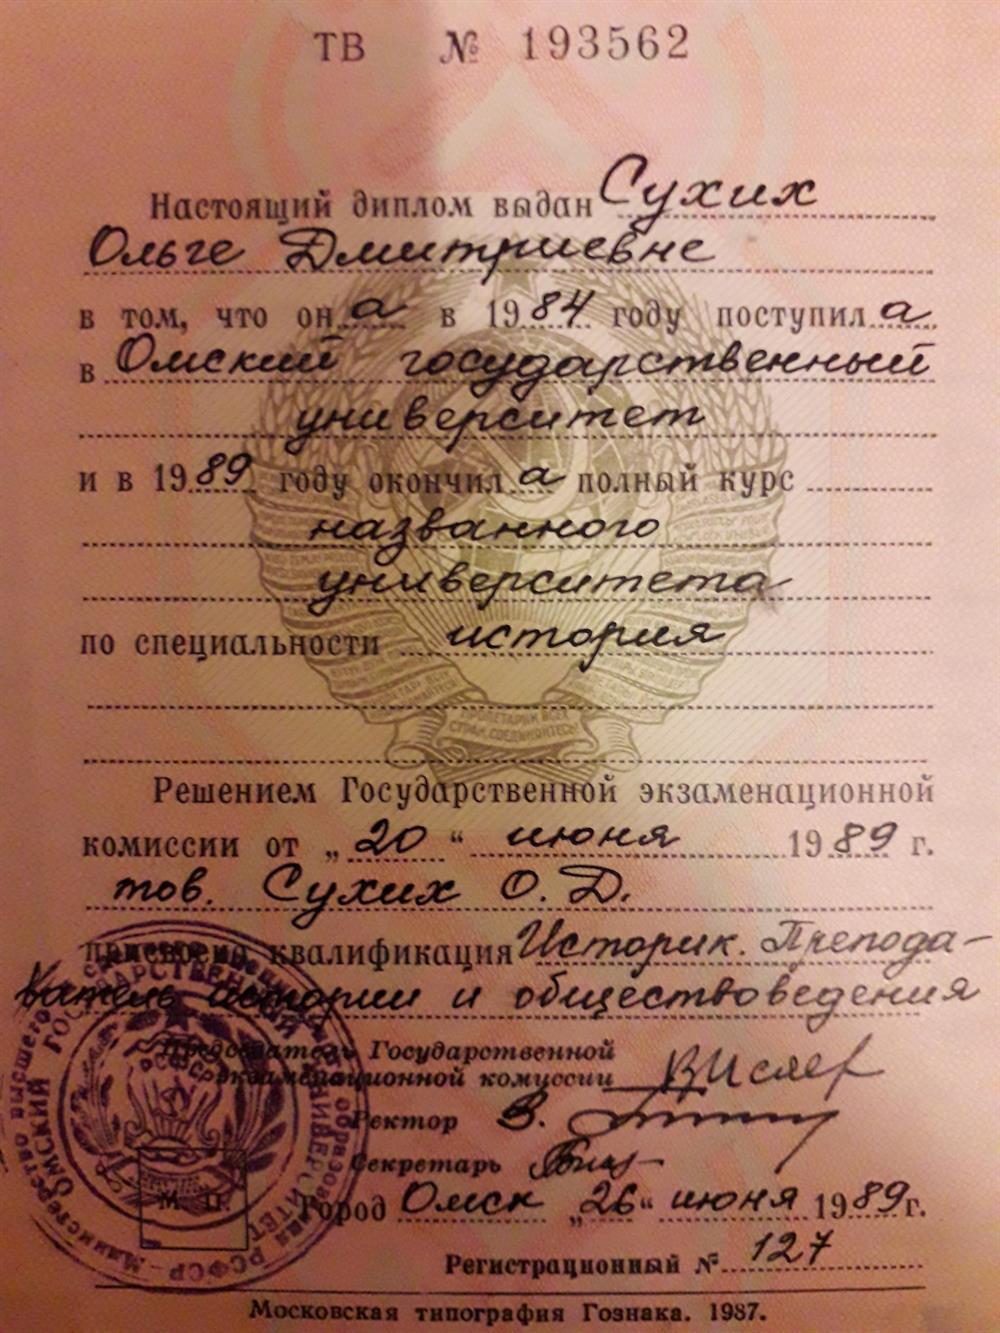 ТВ № 193562
Настоящий диплом выдан Сухих
Ольге Дмитриевне
в том, что она в 1984 году поступила
в Омский государственный
университет
и в 1989 году окончила полный курс
названного
университета
по специальности история
Решением Государственной экзаменационной
комиссии от „20“ июня 1989 г.
тов. Сухих О. Д.
присвоена квалификация Историк. Препода-
ватель истории и обществоведения
Председатель Государственной
экзаменационной комиссии
Ректор
Секретарь
М. П.
Город Омск „26“ июня 1989г.
Регистрационный № 127
Московская типография Гознака. 1987.